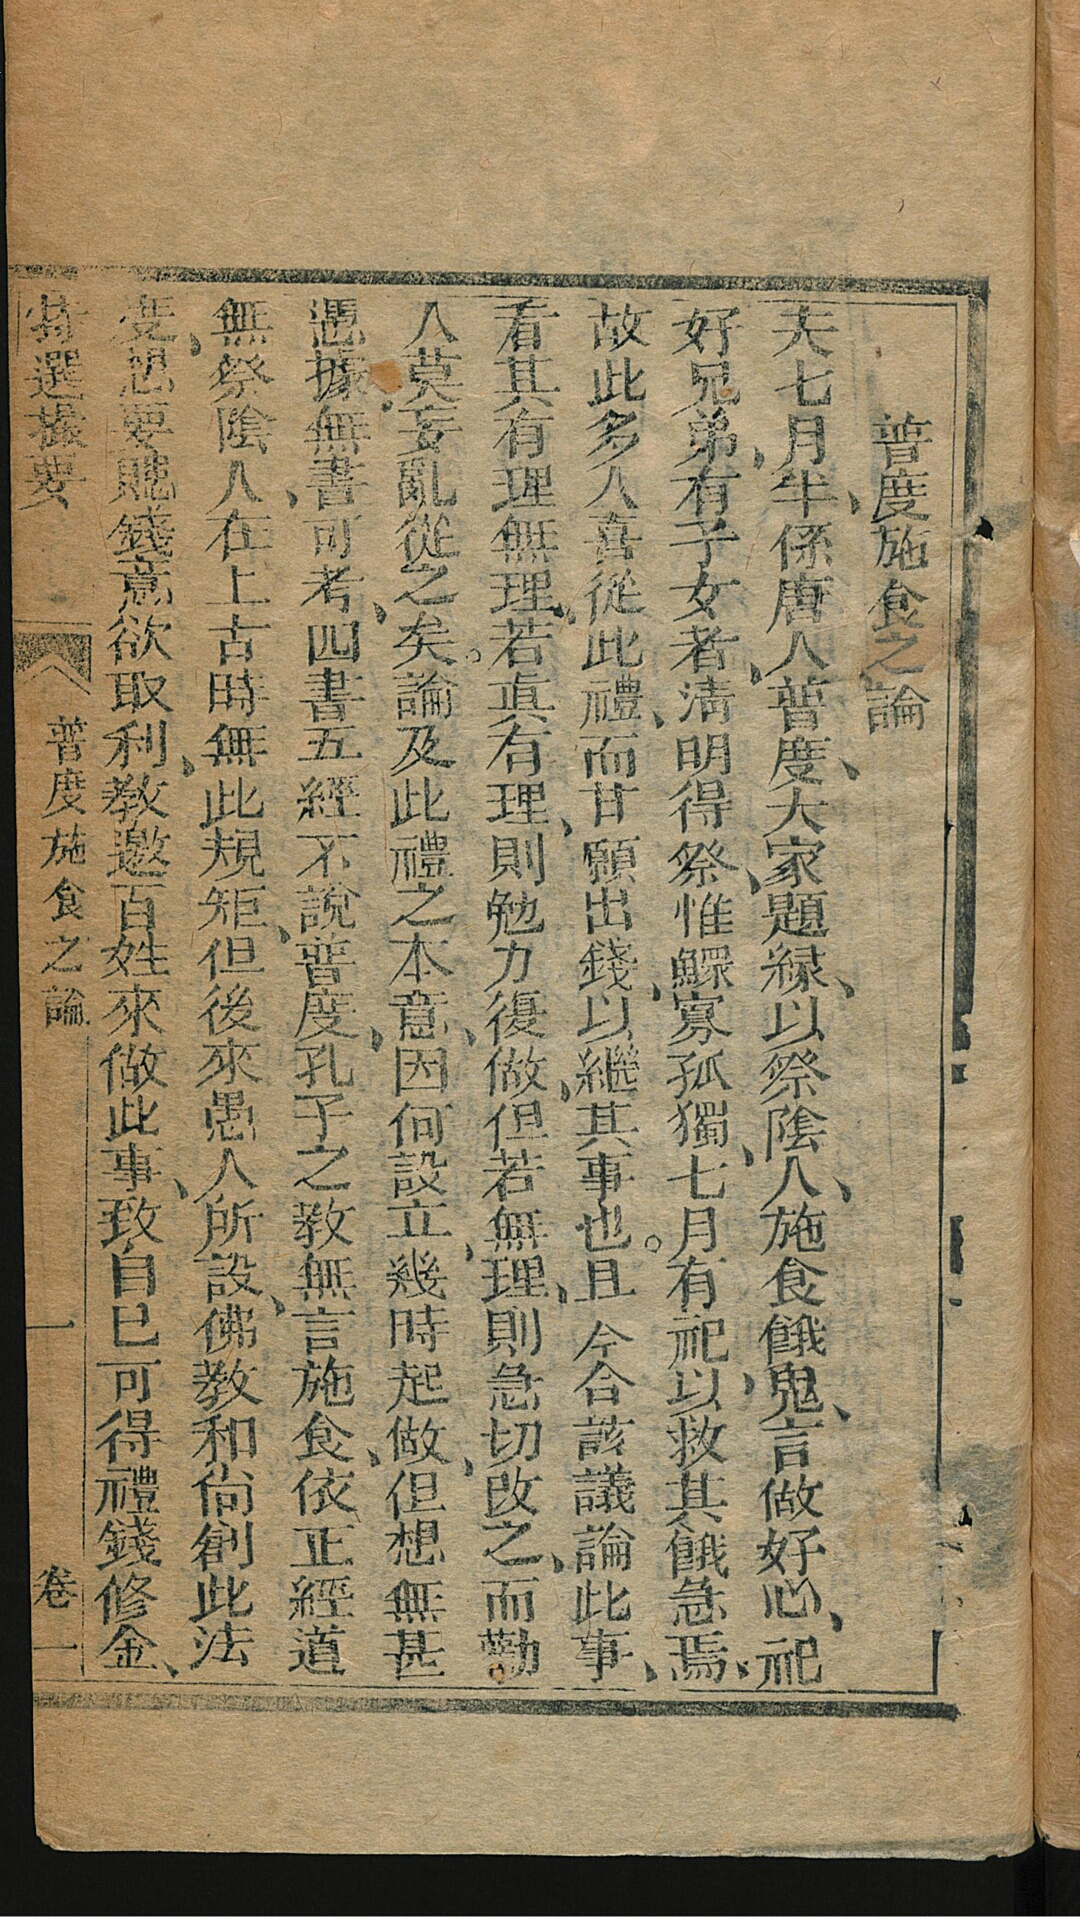 普度施食之論
夫七月半、係唐人普度、大家題緣、以祭陰人、施食餓鬼、言做好心、祀
好兄弟、有子女者、淸明得祭、惟鰥寡孤獨、七月有祀、以救其餓急焉、
故此多人喜從此禮、而甘願出錢、以繼其事也。且今合該議論此事、
看其有理無理、若眞有理、則勉力復做、但若無理、則急切改之、而勸
人莫妄亂從之矣。論及此禮之本意、因何設立、幾時起做、但想無甚
憑據、無書可考、四書五經不說普度、孔子之教無言施食、依正經道
無祭陰人、在上古時無此規矩、但後來愚人所設、佛教和尙創此法
度、想要賺錢、意欲取利、教邀百姓來做此事、致自己可得禮錢修金、
特選撮要
普度施食之論
一
卷一